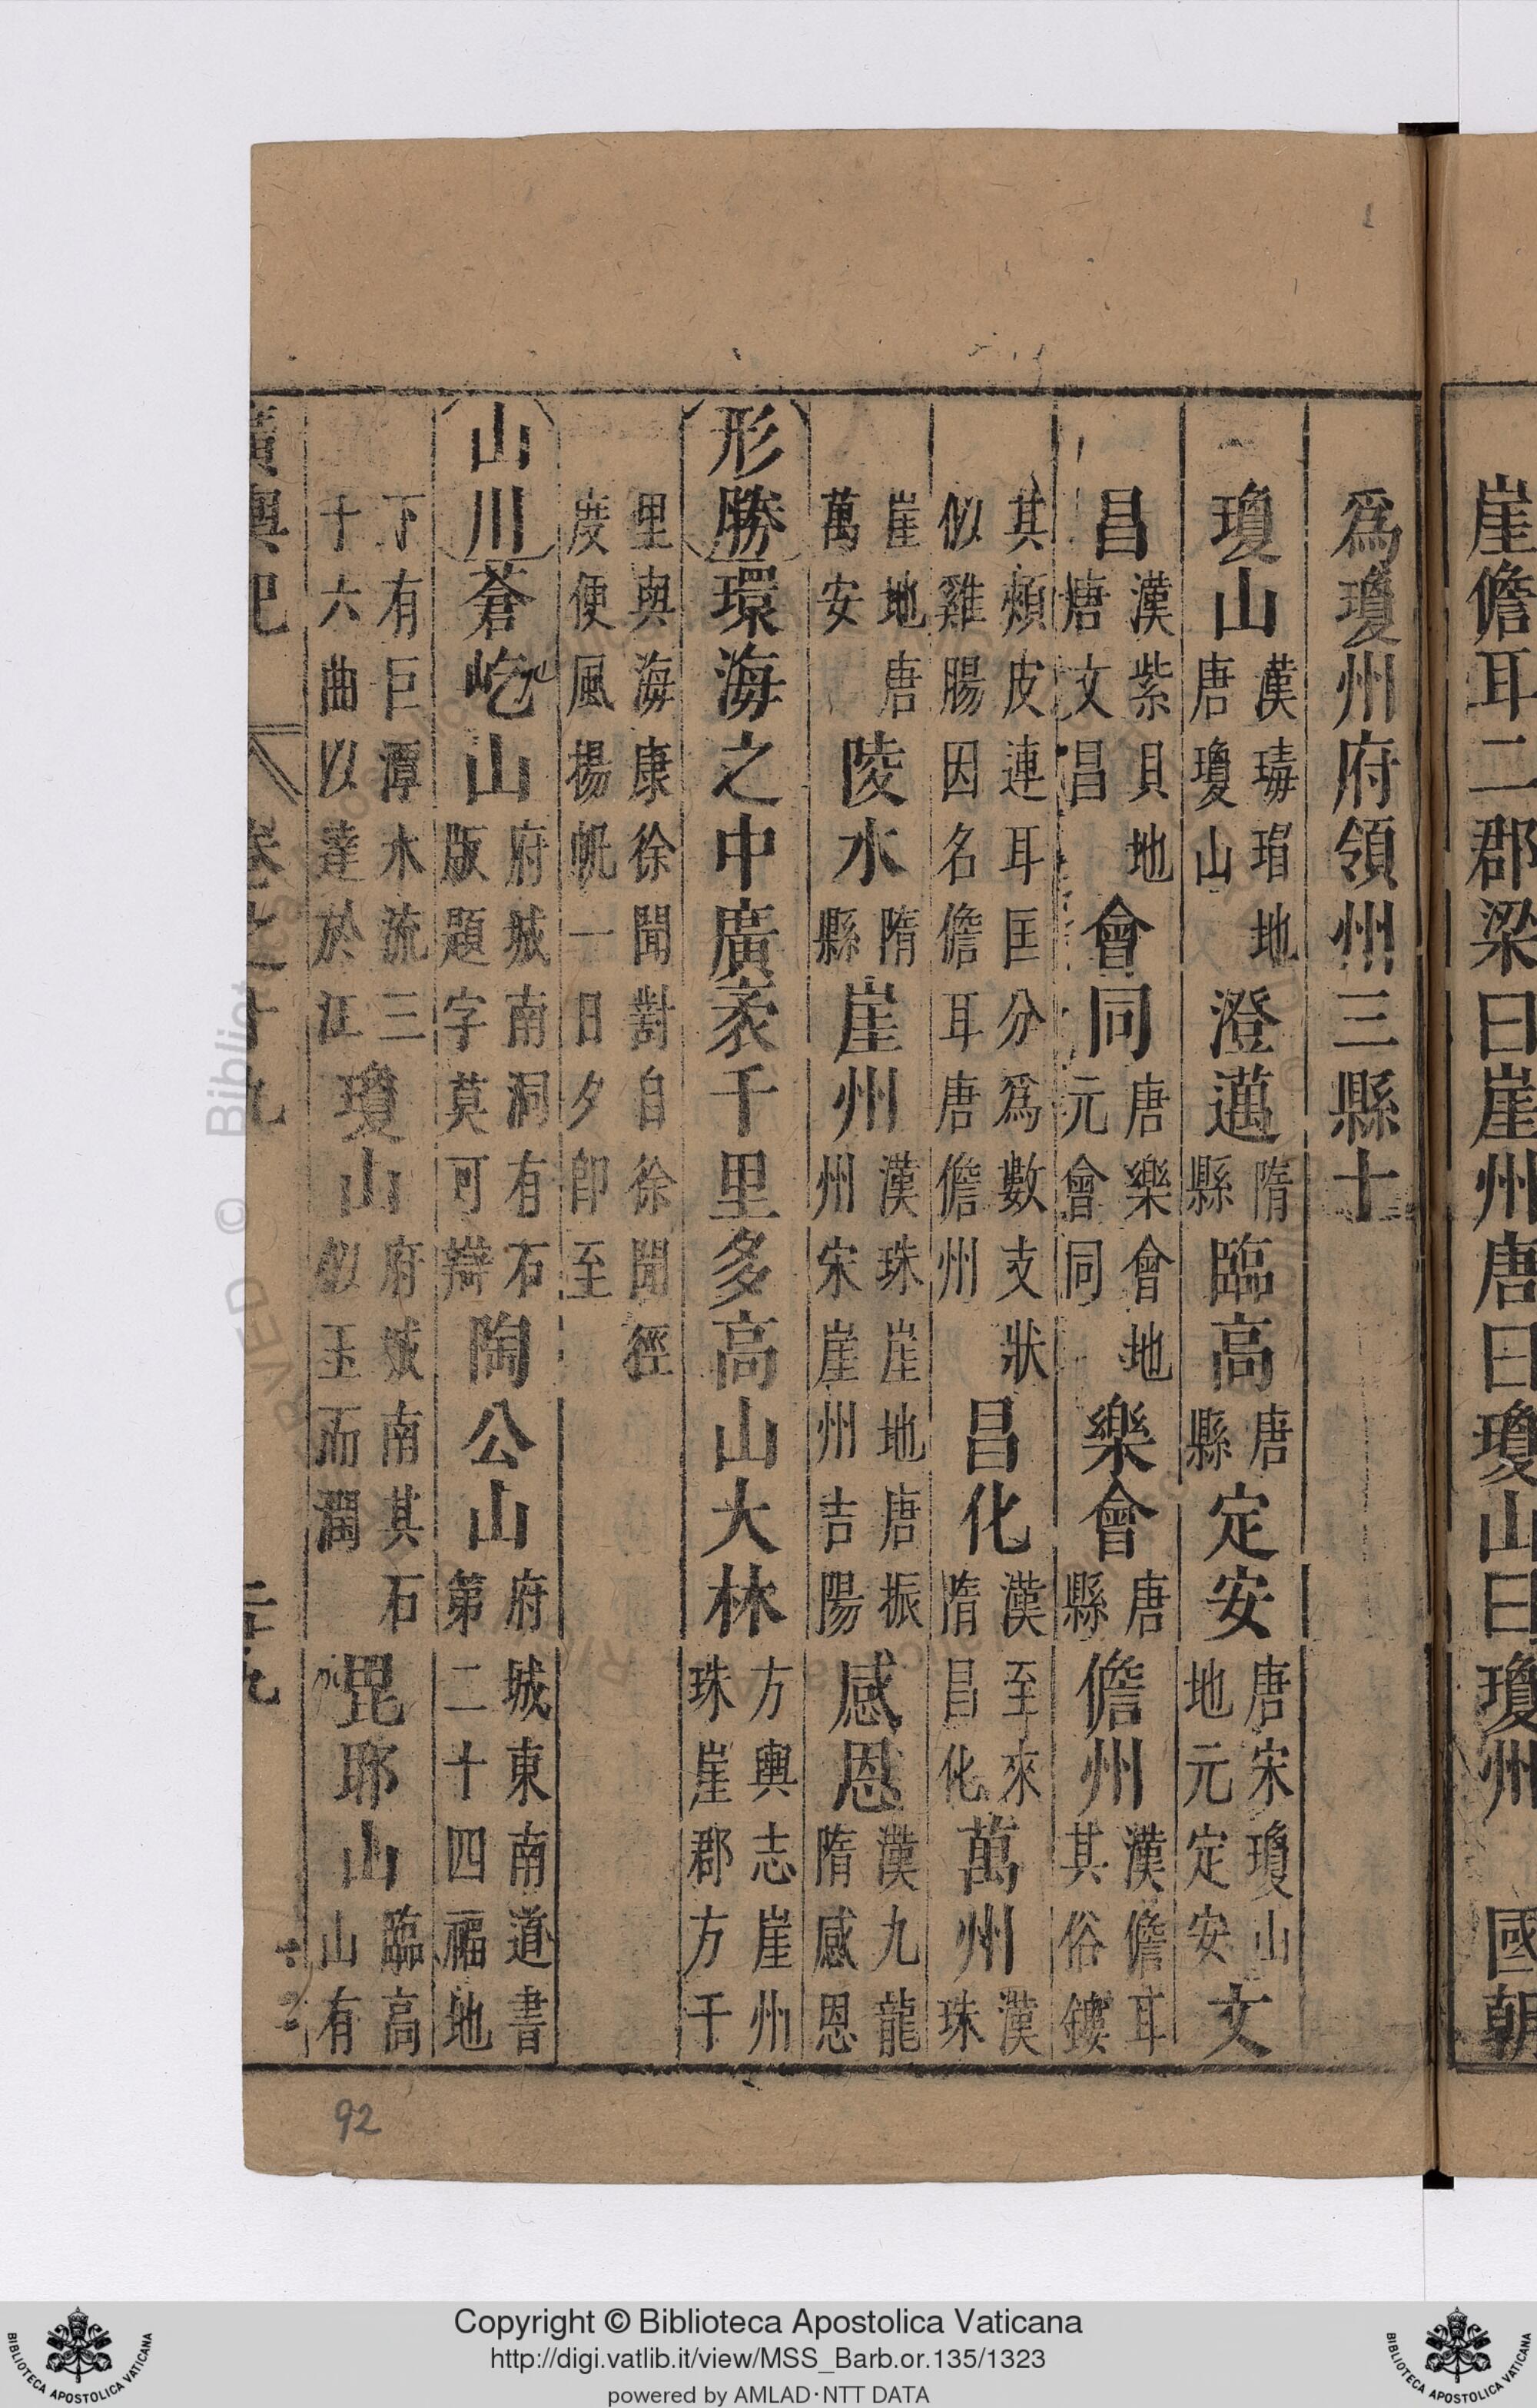 崖儋耳二郡梁曰崖州唐曰瓊山曰瓊州　國朝
爲瓊州府領州三縣十
瓊山漢瑇瑁地唐瓊山澄邁隋縣臨高唐縣定安唐宋瓊山地元定安文
昌漢紫貝地唐文昌會同唐樂會地元會同樂會唐縣儋州漢儋耳其俗鏤
其頰皮連耳匡分爲數支狀似雞腸因名儋耳唐儋州昌化漢至來隋昌化萬州漢珠
崖地唐萬安陵水隋縣崖州漢珠崖地唐振州宋崖州吉陽感恩漢九龍隋感恩
形勝環海之中廣袤千里多高山大林方輿志崖州珠崖郡方千
里與海康徐聞對自徐聞徑度便風揚帆一日夕卽至
山川蒼屹山府城南洞有石版題字莫可辯陶公山府城東南道書第二十四福地
下有巨潭水流三十六曲以達於江瓊山府城南其石似玉而潤毘耶山臨高山有
廣輿記　卷之十九　二十九
92
Copyright © Biblioteca Apostolica Vaticana
http://digi.vatlib.it/view/MSS_Barb.or.135/1323
powered by AMLAD·NTT DATA
BIBLIOTECA APOSTOLICA VATICANA
BIBLIOTECA APOSTOLICA VATICANA